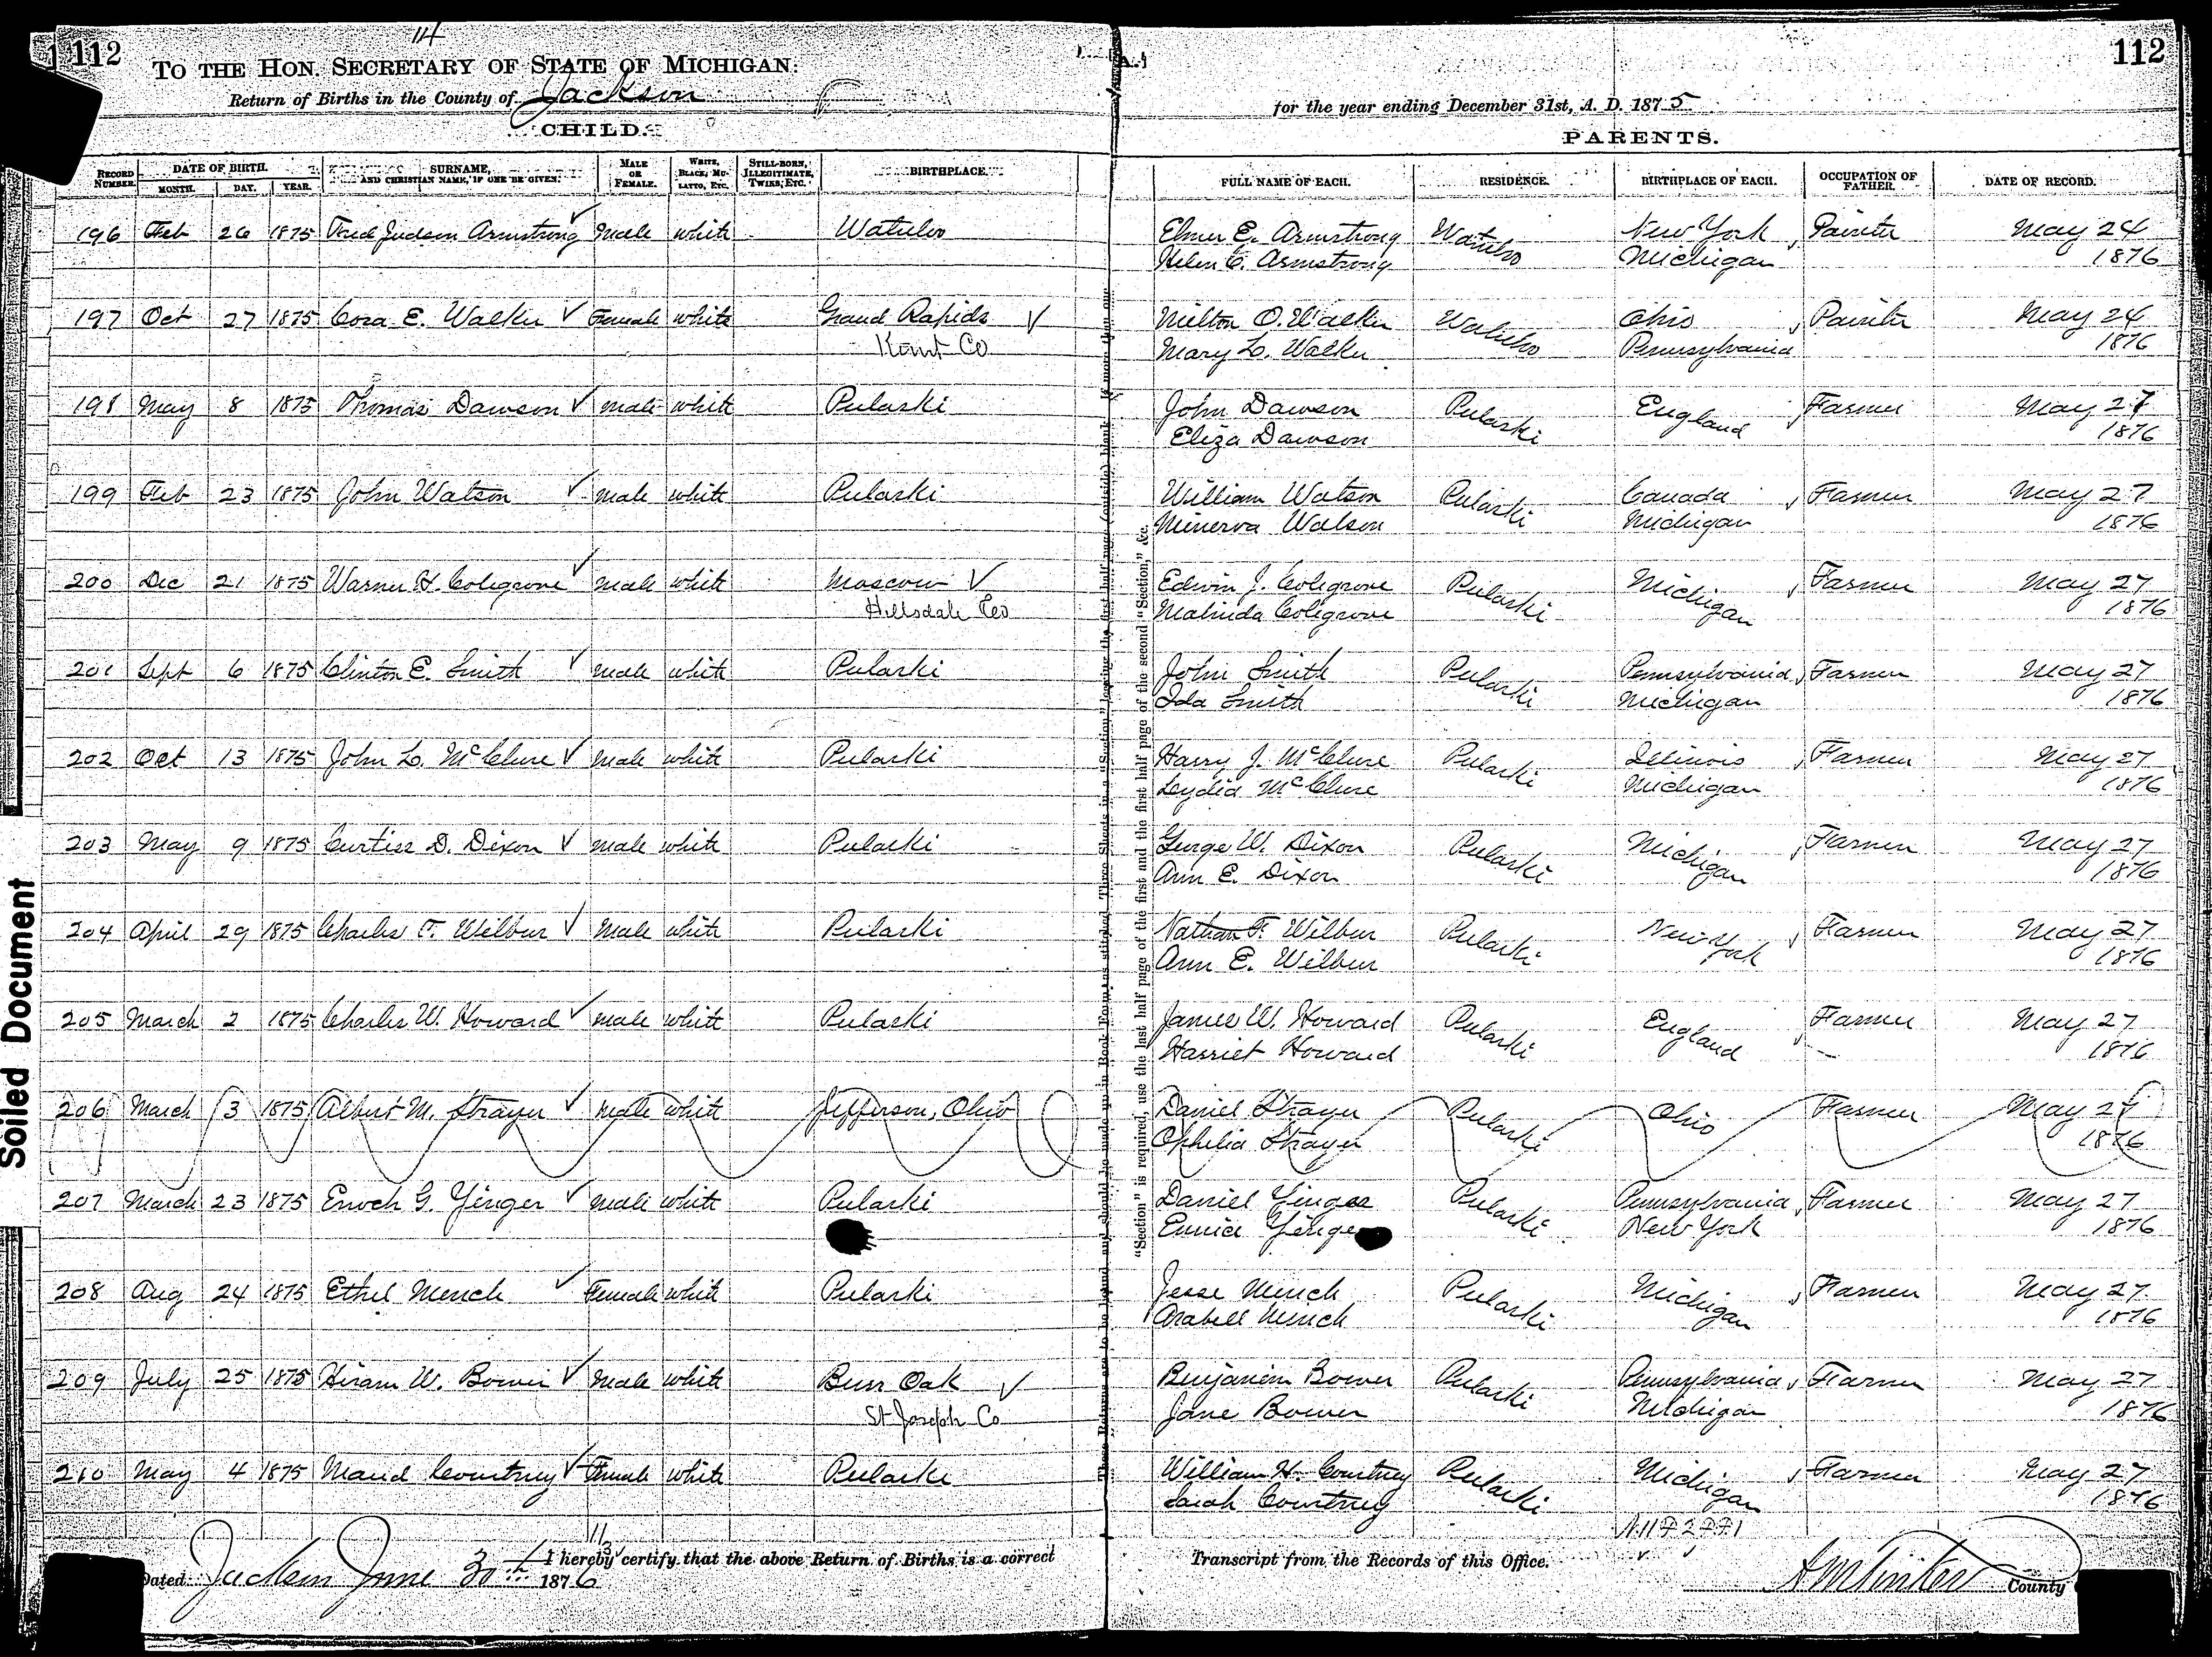 112
114
TO THE HON. SECRETARY OF STATE OF MICHIGAN:
Return of Births in the County of Jackson
for the year ending December 31st, A. D. 1875
112
CHILD.
PARENTS.
RECORD NUMBER. DATE OF BIRTH. MONTH. DAY. YEAR. SURNAME, AND CHRISTIAN NAME, IF ONE BE GIVEN. MALE OR FEMALE. WHITE, BLACK, MULATTO, ETC. STILL-BORN, ILLEGITIMATE, TWINS, ETC. BIRTHPLACE. FULL NAME OF EACH. RESIDENCE. BIRTHPLACE OF EACH. OCCUPATION OF FATHER. DATE OF RECORD.
196 Feb 26 1875 Fred Judson Armstrong ✓ Male white Watuloo Elmer E. Armstrong Watuloo New York, Painter May 24
Helen C. Armstrong Michigan 1876
197 Oct 27 1875 Cora E. Walker ✓ Female white Grand Rapids ✓ Milton O. Walker Watuloo Ohio, Painter May 24
Kent Co Mary L. Walker Pennsylvania 1876
198 May 8 1875 Thomas Dawson ✓ male white Pulaski John Dawson Pulaski England, Farmer May 27
Eliza Dawson 1876
199 Feb 23 1875 John Watson ✓ male white Pulaski William Watson Pulaski Canada, Farmer May 27
Minerva Watson Michigan 1876
200 Dec 21 1875 Warner H. Colegrove ✓ Male white Moscow ✓ Edwin J. Colegrove Pulaski Michigan, Farmer May 27
Hillsdale Co Malinda Colegrove 1876
201 Sept 6 1875 Clinton E. Smith ✓ male white Pulaski John Smith Pulaski Pennsylvania, Farmer May 27
Ida Smith Michigan 1876
202 Oct 13 1875 John L. McClure ✓ Male white Pulaski Harry J. McClure Pulaski Illinois, Farmer May 27
Lydia McClure Michigan 1876
203 May 9 1875 Curtiss D. Dixon ✓ male white Pulaski George W. Dixon Pulaski Michigan, Farmer May 27
Ann E. Dixon 1876
204 April 29 1875 Charles F. Wilbur ✓ Male white Pulaski Nathan F. Wilbur Pulaski New York, Farmer May 27
Ann E. Wilbur 1876
205 March 2 1875 Charles W. Howard ✓ male white Pulaski James W. Howard Pulaski England, Farmer May 27
Harriet Howard 1876
206 March 3 1875 Albert M. Strayer ✓ Male white Jefferson, Ohio Daniel Strayer Pulaski Ohio Farmer May 27
Ophelia Strayer 1876
207 March 23 1875 Enoch G. Yinger ✓ male white Pulaski Daniel Yinger Pulaski Pennsylvania, Farmer May 27
Eunice Yinger New York 1876
208 Aug 24 1875 Ethel Mench ✓ Female white Pulaski Jesse Mench Pulaski Michigan, Farmer May 27
Arabell Mench 1876
209 July 25 1875 Hiram W. Bower ✓ Male white Burr Oak ✓ Benjamin Bower Pulaski Pennsylvania, Farmer May 27
St Joseph Co Jane Bower Michigan 1876
210 May 4 1875 Maud Courtney ✓ Female white Pulaski William H. Courtney Pulaski Michigan, Farmer May 27
Sarah Courtney 1876
Dated Jackson June 30th 1876 I hereby certify that the above Return of Births is a correct Transcript from the Records of this Office.
County
Soiled Document
"Section" is required, use the last half page of the first and the first half page of the second "Section," &c.